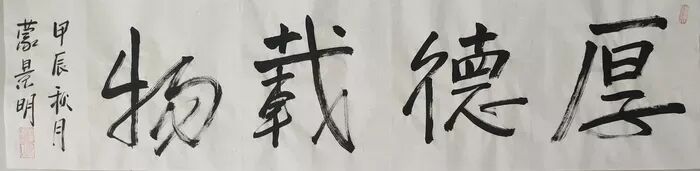 厚德载物
甲辰秋月
蒙景明